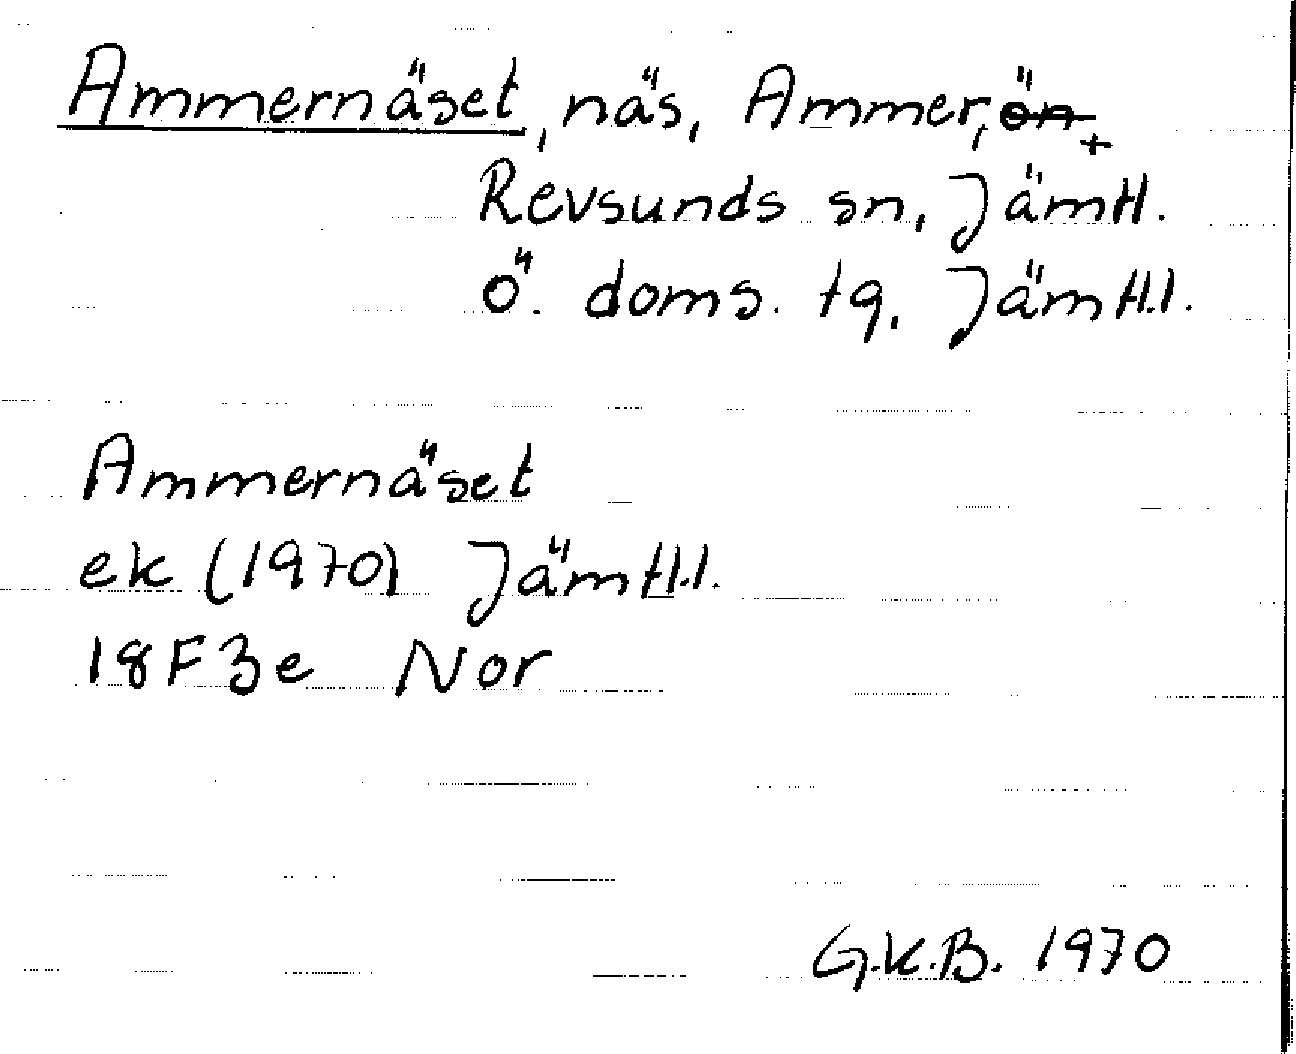 Ammernäset, näs, Ammer, ön +
Revsunds sn, Jämtl.
Ö. doms. tg, Jämtl.l.
Ammernäset
ek (1970) Jämtl.l.
18F3e Nor
G.K.B. 1970